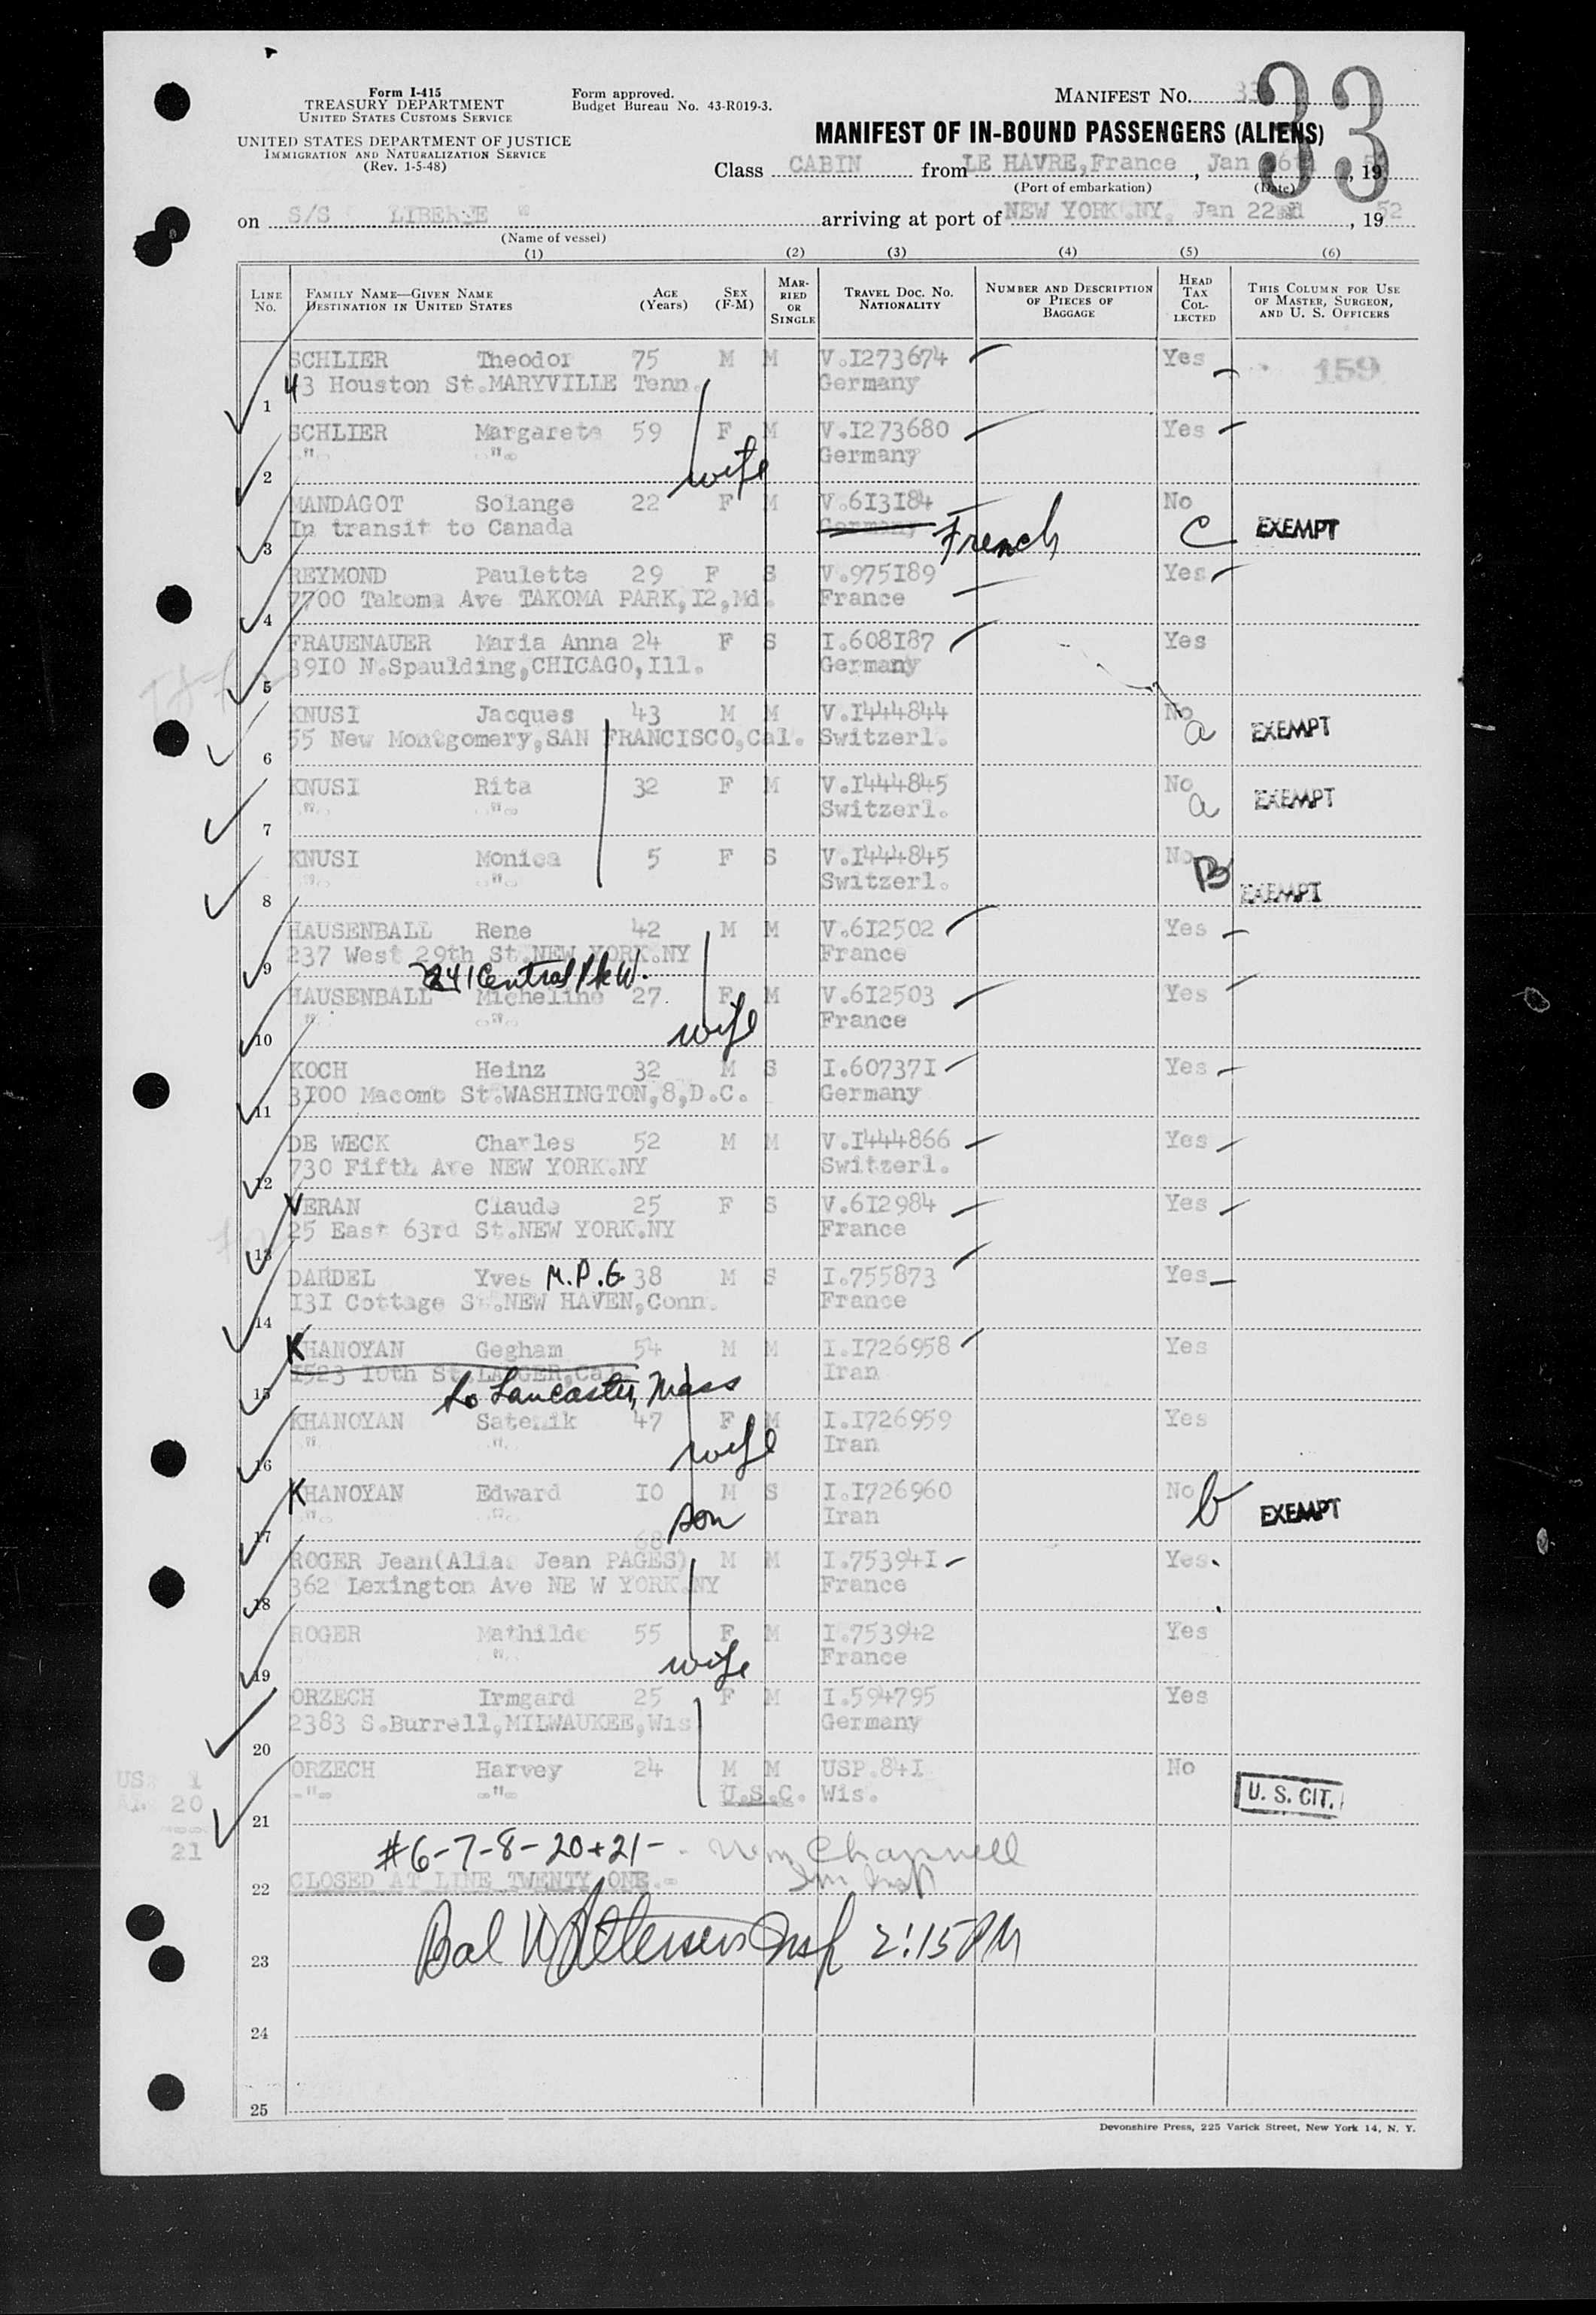 Form I-415
TREASURY DEPARTMENT
UNITED STATES CUSTOMS SERVICE
UNITED STATES DEPARTMENT OF JUSTICE
IMMIGRATION AND NATURALIZATION SERVICE
(Rev. 1-5-48)
Form approved.
Budget Bureau No. 43-R019-3.
MANIFEST No. 33
33
MANIFEST OF IN-BOUND PASSENGERS (ALIENS)
Class CABIN from LE HAVRE, France, Jan 16th, 19
(Port of embarkation) (Date)
on S/S LIBERTE " arriving at port of NEW YORK.NY. Jan 22nd, 1952
(Name of vessel)
(1) (2) (3) (4) (5) (6)
LINE No. FAMILY NAME—GIVEN NAME DESTINATION IN UNITED STATES AGE (Years) SEX (F-M) MARRIED OR SINGLE TRAVEL DOC. NO. NATIONALITY NUMBER AND DESCRIPTION OF PIECES OF BAGGAGE HEAD TAX COLLECTED THIS COLUMN FOR USE OF MASTER, SURGEON, AND U. S. OFFICERS
SCHLIER Theodor 75 M M V.I273674 Yes 159
43 Houston St.MARYVILLE Tenn. Germany
1
SCHLIER Margarete 59 F M V.I273680 Yes
" " wife Germany
2
MANDAGOT Solange 22 F M V.6I3I84 No
In transit to Canada Germany French C EXEMPT
3
REYMOND Paulette 29 F S V.975I89 Yes
7700 Takoma Ave TAKOMA PARK,I2,Md. France
4
FRAUENAUER Maria Anna 24 F S I.608I87 Yes
39I0 N.Spaulding,CHICAGO,Ill. Germany
5
KNUSI Jacques 43 M M V.I444844 No
55 New Montgomery,SAN FRANCISCO,Cal. Switzerl. a EXEMPT
6
KNUSI Rita 32 F M V.I444845 No
" " Switzerl. a EXEMPT
7
KNUSI Monica 5 F S V.I444845 No
" " Switzerl. B EXEMPT
8
HAUSENBALL Rene 42 M M V.6I2502 Yes
237 West 29th St.NEW YORK.NY France
9
241 Central Pk W.
HAUSENBALL Micheline 27 F M V.6I2503 Yes
" " wife France
10
KOCH Heinz 32 M S I.60737I Yes
3I00 Macomb St.WASHINGTON,8,D.C. Germany
11
DE WECK Charles 52 M M V.I444866 Yes
730 Fifth Ave NEW YORK.NY Switzerl.
12
VERAN Claude 25 F S V.6I2984 Yes
25 East 63rd St.NEW YORK.NY France
13
DARDEL Yves M.P.G. 38 M S I.755873 Yes
I3I Cottage St.NEW HAVEN,Conn. France
14
KHANOYAN Gegham 54 M M I.I726958 Yes
1523 10th St. Iran
15 to Lancaster, Mass
KHANOYAN Satenik 47 F M I.I726959 Yes
" " wife Iran
16
KHANOYAN Edward I0 M S I.I726960 No
" " son Iran b EXEMPT
17
68
ROGER Jean(Alias Jean PAGES) M M I.75394I Yes
362 Lexington Ave NE W YORK.NY France
18
ROGER Mathilde 55 F M I.753942 Yes
" wife France
19
ORZECH Irmgard 25 F M I.594795 Yes
2383 S.Burrell,MILWAUKEE,Wis Germany
20
ORZECH Harvey 24 M M USP.84I No
-"- -"- U.S.C. Wis. U. S. CIT.
21
US: 1
AL: 20
21
#6-7-8-20+21- Wm Chappell
Im Insp
CLOSED AT LINE TWENTY ONE.-
22
Bal Insp 2:15 PM
23
24
25
Devonshire Press, 225 Varick Street, New York 14, N. Y.